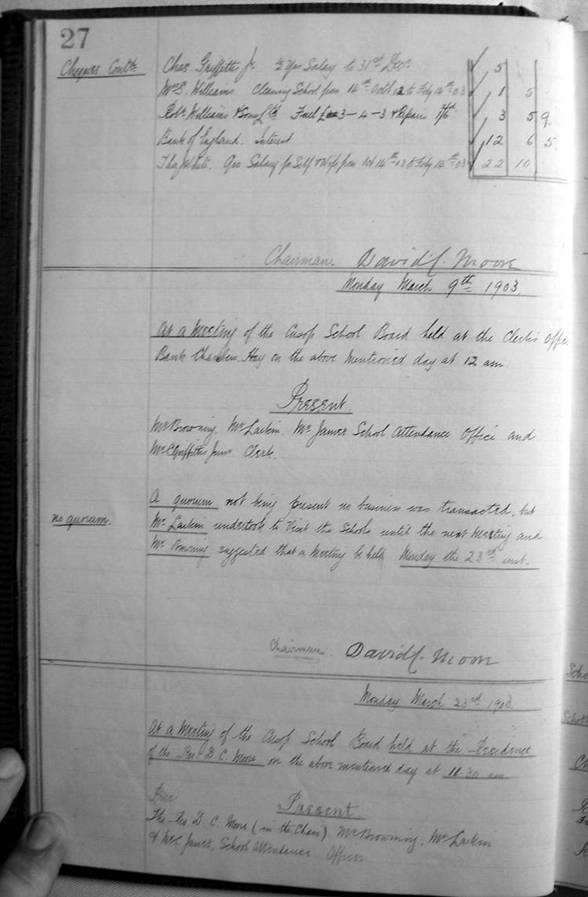 27
Cheques Contd. Chas. Griffiths Jr. ¼ yrs Salary to 31st Dec. 5
Mrs E. Williams Cleaning School from 14th Octr to Feby 14th 03 1 5
Robt Williams & Sons Ltd Fuel £3-4-3 & Repairs 1/6 3 5 9
Bank of England. Interest 12 6 5
Thos White. Qrs Salary for Self & Wife from Oct 14th 02 to Feby 14th 03 22 10
Chairman. David C. Moore
Monday March 9th 1903.
At a Meeting of the Cusop School Board held at the Clerk's Office
Bank Chambers, Hay on the above mentioned day at 12 am
Present
Mr Browning. Mr Larkin. Mr James School Attendance Office and
Mr C Griffiths Junr Clerk.
no quorum.
A quorum not being present no business was transacted, but
Mr Larkin undertook to visit the Schools until the next Meeting and
Mr Browning suggested that a Meeting be held Monday the 23rd inst.
Chairman. David C. Moore
Monday March 23rd 1903.
At a Meeting of the Cusop School Board held at the Residence
of the Rev D. C. Moore on the above mentioned day at 11.30 am
Present
The Rev D. C. Moore (in the Chair) Mr Browning, Mr Larkin
& Mr James, School Attendance Officer